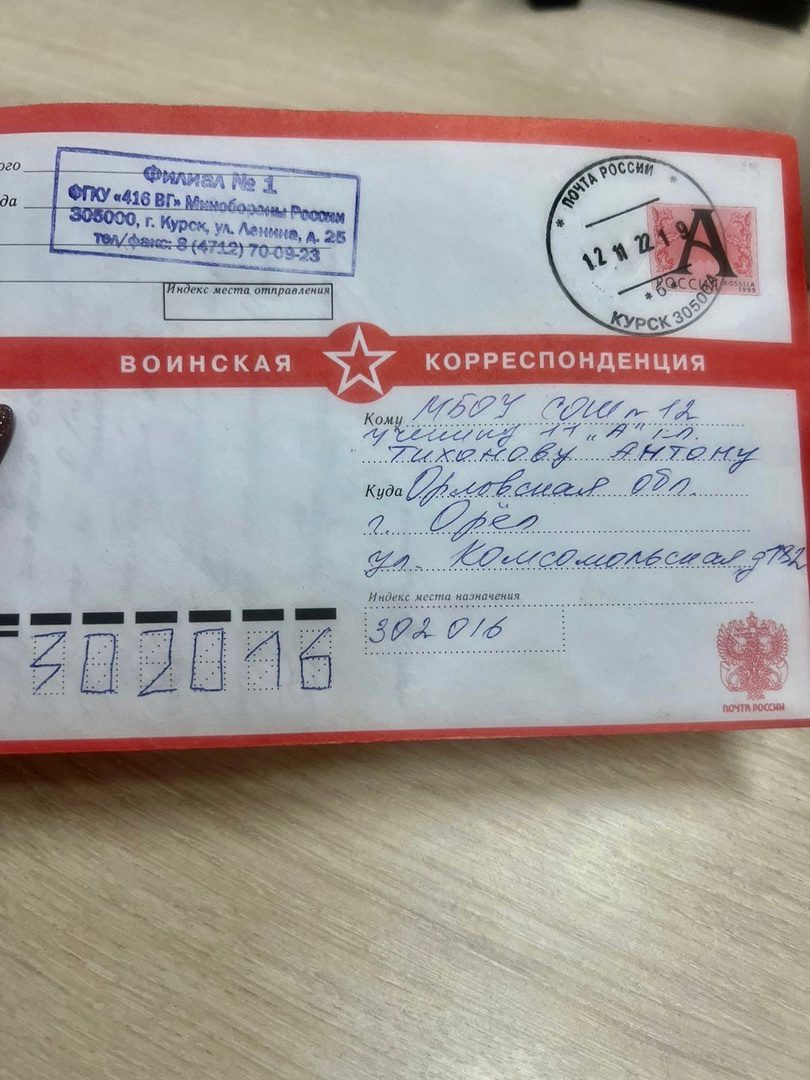 ого
да
Филиал № 1
ФГКУ «416 ВГ» Минобороны России
305000, г. Курск, ул. Ленина, д. 25
тел/факс: 8 (4712) 70-09-23
Индекс места отправления
* ПОЧТА РОССИИ *
12 11 22 19
* б *
КУРСК 305000
А
РОССИЯ ROSSIJA
1999
ВОИНСКАЯ КОРРЕСПОНДЕНЦИЯ
Кому МБОУ СОШ № 12
ученику 11 "А" кл.
Тиханову Антону
Куда Орловская обл.
г. Орёл
ул. Комсомольская
Индекс места назначения
302016
302016
ПОЧТА РОССИИ